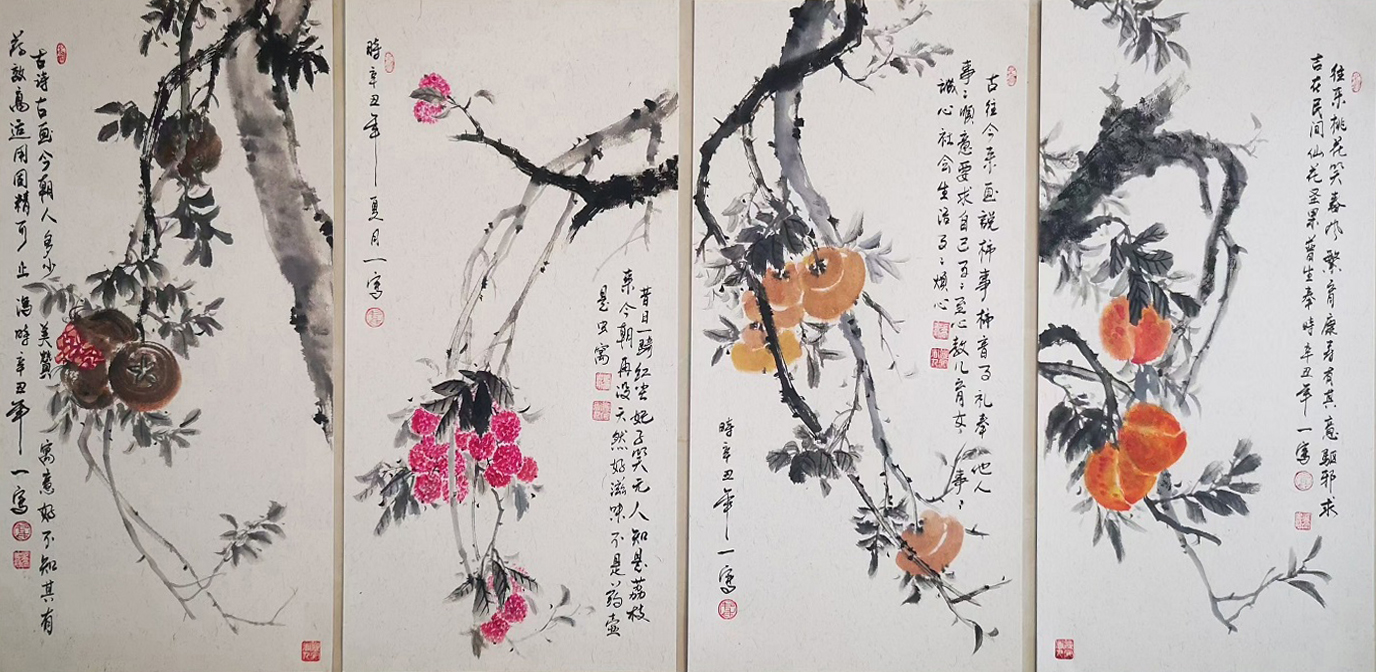 古诗古画今朝人多少美赞寓意好不知其有
药效高运用固精可止泻時辛丑年一寫
昔日一騎红尘妃子笑无人知是荔枝
来今朝再没天然好滋味不是药壶
是
時辛丑年夏月一寫
古往今来画説柿事柿音事礼奉他人
事々順意要求自己事々至心教儿育女事々
诚心社会生活事々順心
時辛丑年一寫
往来桃花笑春风繁育康寿有其意驱邪求
吉在民间仙花圣果普生奉時辛丑年一寫